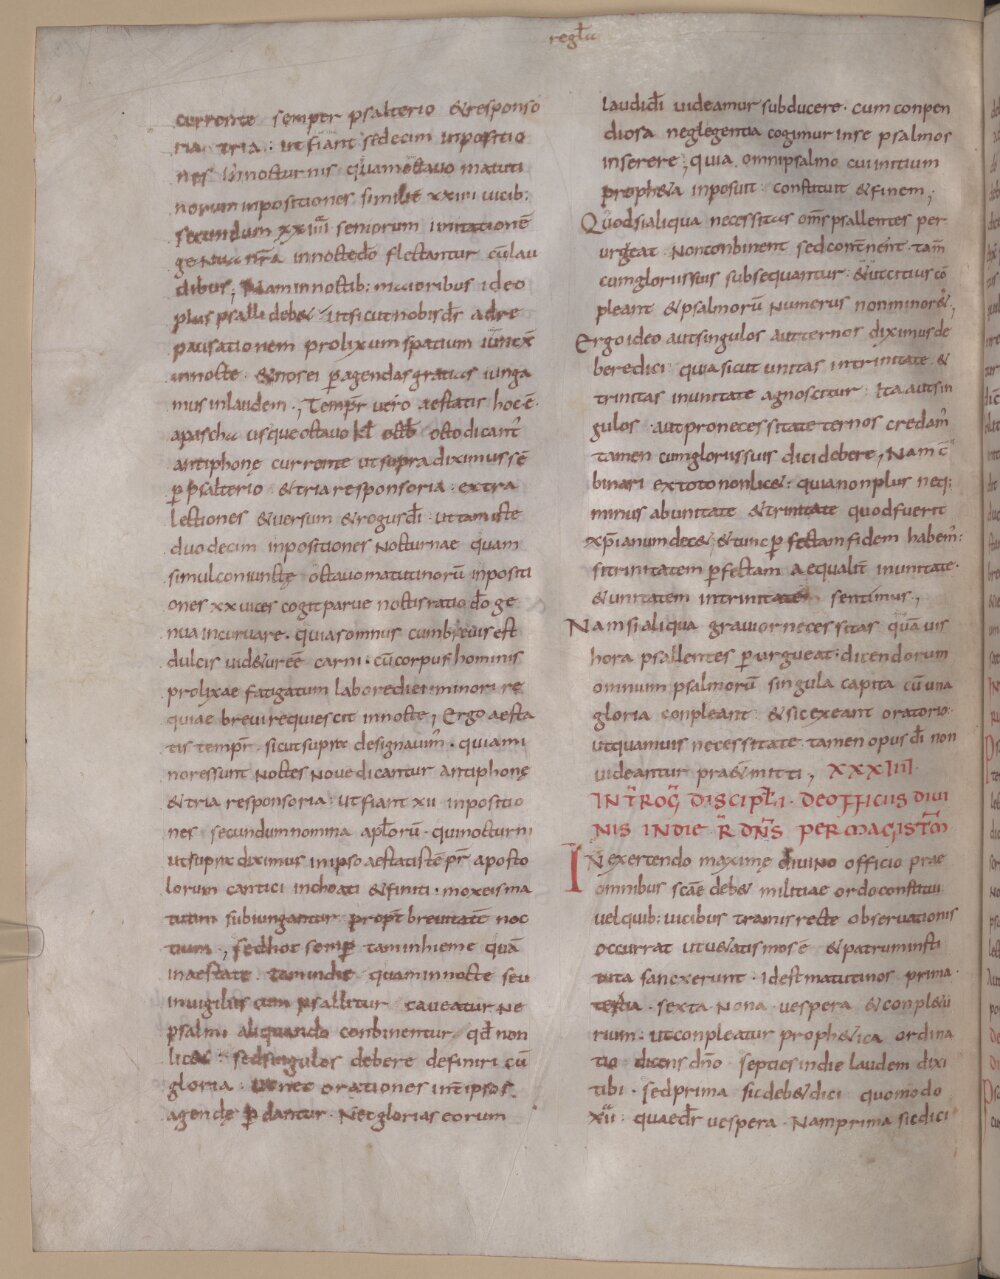 regła
currente semper psalterio &responso
ria tria : ut fiant sedecim inpositio
nes in nocturnis quam octavo matuti
norum inpositiones simile xxiiii vicib:
secundum xxiiii seniorum imitationē
genua nr̄a in nocte dō flectantur cū lau
dibus, Nam in noctib: maioribus ideo
plus psalli deb& ut sicut nobis dr̄ a dre
pausationem prolixum spatium iuncx̄
in nocte · & nos ei p agendas gratias iunga
mus in laudem ., Tempr̄ vero aestatis hoc ē ·
a pascha usque octavo kł octb̄ octo dicant̄
antiphonę currente ut supra diximus sē
p psalterio & tria responsoria : extra
lectiones & versum & rogus dī · ut tam iste
duodecim inpositiones Nocturnae quam
simul coniunctę octavo matutinorū inpositi
ones xx vices cogit parve noctis ratio dō ge
nua incurvare · quia somnus cum brevis est
dulcis vid&ur eē carni · cū corpus hominis
prolixae fatigatum labore diei minori re
quiae brevi requiescit in nocte, Ergo aesta
tis tempr̄ · sicut supra designavim̄ · quia mi
nores sunt Noctes Nove dicantur antiphonę
& tria responsoria : ut fiant xii inpositio
nes secundum nomina aplorū · qui nocturni
ut supra diximus in ipso aestatis tēpr̄ aposto
lorum cantici inchoati & finiti · mox eis ma
tutini subiungantur propt̄ brevitatē noc
tium, sed hoc semp tam in hieme quā
in aestate · tam in die quam in nocte seu
in vigiliis cum psallitur caveatur Ne
psalmi aliquando conbinentur · qđ non
lic& : sed singulos debere definiri cū
gloria · ut nec orationes int̄ ipsos
agendę p dantur · Nec glorias eorum
laudi dī videamur subducere · cum conpen
diosa neglegentia cogimur in se psalmos
inserere ; quia omni psalmo cui initium
proph&a inposuit constituit & finem,
Quod si aliqua necessitas om̄s psallentes per
urgeat Non conbinent sed contēnent tam̄
cum gloriis suis subsequantur · & ut citius cō
pleant & psalmorū Numerus non minor&,
Ergo ideo aut singulos aut ternos diximus de
bere dici · quia sicut unitas in trinitate &
trinitas in unitate agnoscitur · Ita aut sin
gulos · aut pro necessitate ternos credam̄
tamen cum gloriis suis dici debere, Nam c̄
binari ex toto non lic& : quia non plus neq;
minus ab unitate & trinitate quod fuerit
xp̄ianum dec& ; & tunc p fectam fidem habem̄ :
si trinitatem p fectam aequalit̄ in unitate ·
& unitatem in trinitatem sentimus,
Nam si aliqua gravior necessitas quā vis
hora psallentes p urgueat · dicendorum
omnium psalmorū singula capita cū una
gloria conpleant & sic exeant oratorio ·
ut quamvis necessitate tamen opus dī non
videantur pra&mitti, XXXIIII ·
INTROG̃ DISCIPLI · DE OFFICIIS DIVI
NIS IN DIE R̄ DN̄S PER MAGISTR̄M
IN exercendo maximę divino officio prae
omnibus scāe deb& militiae ordo constitui
vel quib: vicibus tramis recte observationis
occurrat ut v&atis mos ē & patrum insti
tuta sanxerunt · Id est matutinos prima ·
tertia · sexta Nona · vespera & conpl&u
rium · ut conpleatur proph&ica ordina
tio dicens dn̄o septies in die laudem dixi
tibi · sed prima sic deb& dici quomodo
xii · quae dr̄ vespera · Nam prima sic dici